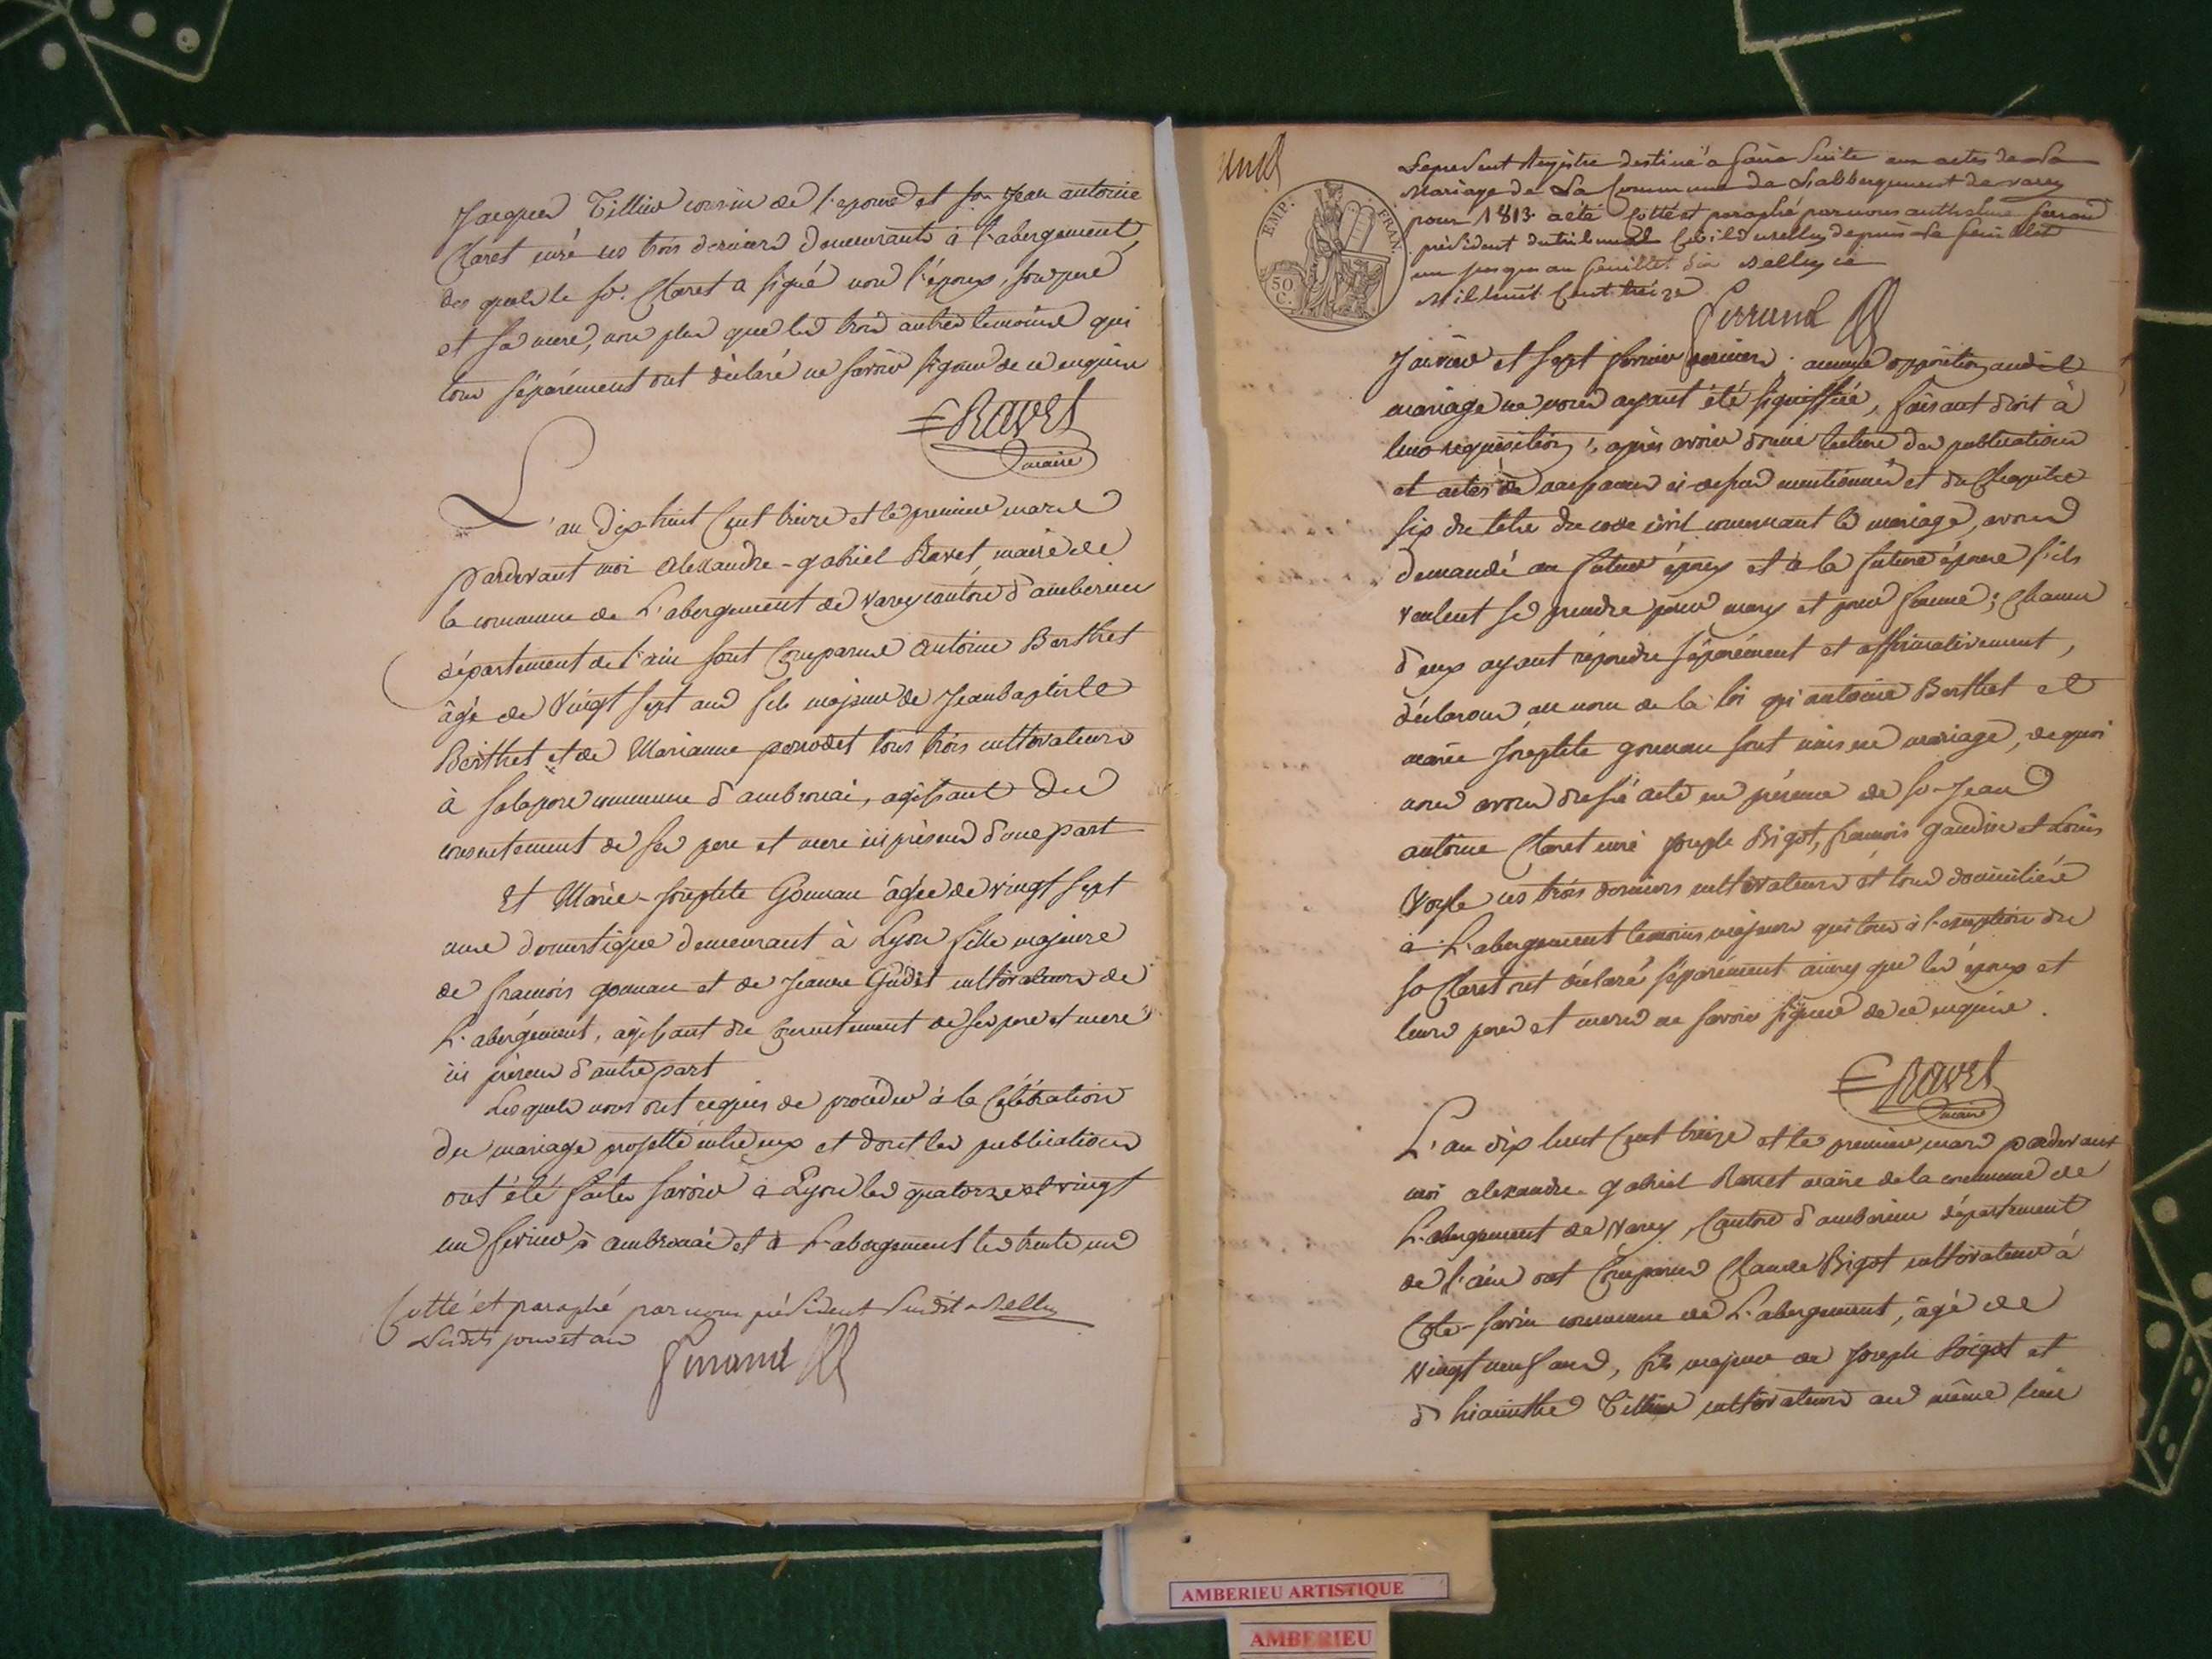 Jacques Tillier cousin de l'epouse et sr Jean antoine
Claret curé ces trois derniers demeurants à l'abergement,
des quels le sr. Claret a signé non l'époux, son pere
et sa mere, non plus que les trois autres temoins qui
tous séparément ont déclaré ne savoir signer de ce enquis
Ravet
maire
L'an dix huit cent treize et le premier mars
pardevant moi Alexandre-gabriel Ravet, maire de
la commune de L'abergement de varey canton d'amberieu
département de l'ain sont comparus antoine Berthet
âgé de vingt sept ans fils majeur de Jean baptiste
Berthet et de Marianne perrodet tous trois cultivateurs
à commune d'ambronai, agissant du
consentement de ses pere et mere ici présens d'une part
Et Marie-Josephte Gonnau âgée de vingt sept
ans domestique demeurant à Lyon fille majeure
de francois gonnau et de Jeanne cultivateurs de
L'abergement, agissant du consentement de ses pere et mere
ici présens d'autre part
Lesquels nous ont requis de procéder à la célébration
du mariage projetté entre eux et dont les publications
ont été faites savoir à Lyon les quatorze et vingt
un fevrier à ambronai et à L'abergement les trente un
Cotté et paraphé par nous président susdit a Belley
Lesdits jour et an
ferrand
un
EMP. FRAN.
50 C.
Le present Registre destiné a faire suite aux actes de
Mariage de La Commune de Labbergement de varey
pour 1813 a été cotté et paraphé par nous anthelme ferrand
président du tribunal Civil de Belley depuis le feuillet
un jusques au feuillet Belley ce
Mil huit cent treize
ferrand
Janvier et sept fevrier derniers. aucune opposition audit
mariage ne nous ayant été signiffiée, faisant droit à
leur requisition, après avoir donné lecture des publications
et actes de naissances ci dessus mentionnés et du chapitre
six du titre du code civil concernant le mariage, avons
demandé au futur époux et à la future épouse s'ils
veulent se prendre pour mary et pour femme; chacun
d'eux ayant répondu séparément et affirmativement,
déclarons au nom de la loi qu'antoine Berthet et
marie Josephte gonnau sont unis en mariage, de quoi
nous avons dressé acte en présence de sr Jean
antoine Claret curé Joseph Bigot, francois gaudin et Louis
ces trois derniers cultivateurs et tous domiciliés
à L'abergement temoins majeurs qui tous à l'exception du
sr Claret ont déclaré séparément ainsy que les époux et
leurs peres et meres ne savoir signer de ce enquis.
Ravet
maire
L'an dix huit cent treize et le premier mars pardevant
moi alexandre gabriel Ravet maire de la commune de
L'abergement de Varey, canton d'amberieu département
de l'ain ont comparus Claude Bigot cultivateur à
Côte-savin commune de L'abergement, âgé de
vingt neuf ans, fils majeur de Joseph Bigot et
d'hiacinthe Tillier cultivateurs au même lieu
AMBERIEU ARTISTIQUE
AMBERIEU